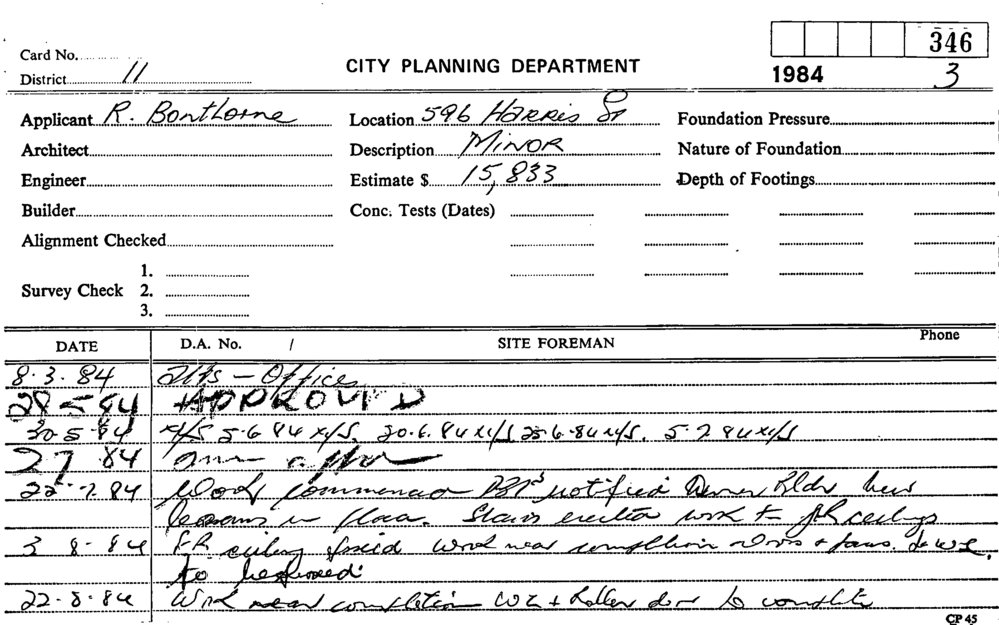 346
Card No.
CITY PLANNING DEPARTMENT
District 11
1984 3
Applicant R. Bonthorne Location 596 Harris St Foundation Pressure
Architect Description MINOR Nature of Foundation
Engineer Estimate $ 15,833 Depth of Footings
Builder Conc. Tests (Dates)
Alignment Checked
1.
Survey Check 2.
3.
DATE D.A. No. / SITE FOREMAN Phone
8.3.84 Alts - Office
28-5-84 APPROVED
30.5.84 5.6.84 20.6.84 25.6.84 5.7.84
27 84
22.7.84 Work commenced notified Owner Bldr
in place. Stairs erected work to FR ceilings
3 8-84 F.R. ceiling fixed work near completion
to be fixed
22-8-84 Work near completion WC + Roller door to complete
CP 45